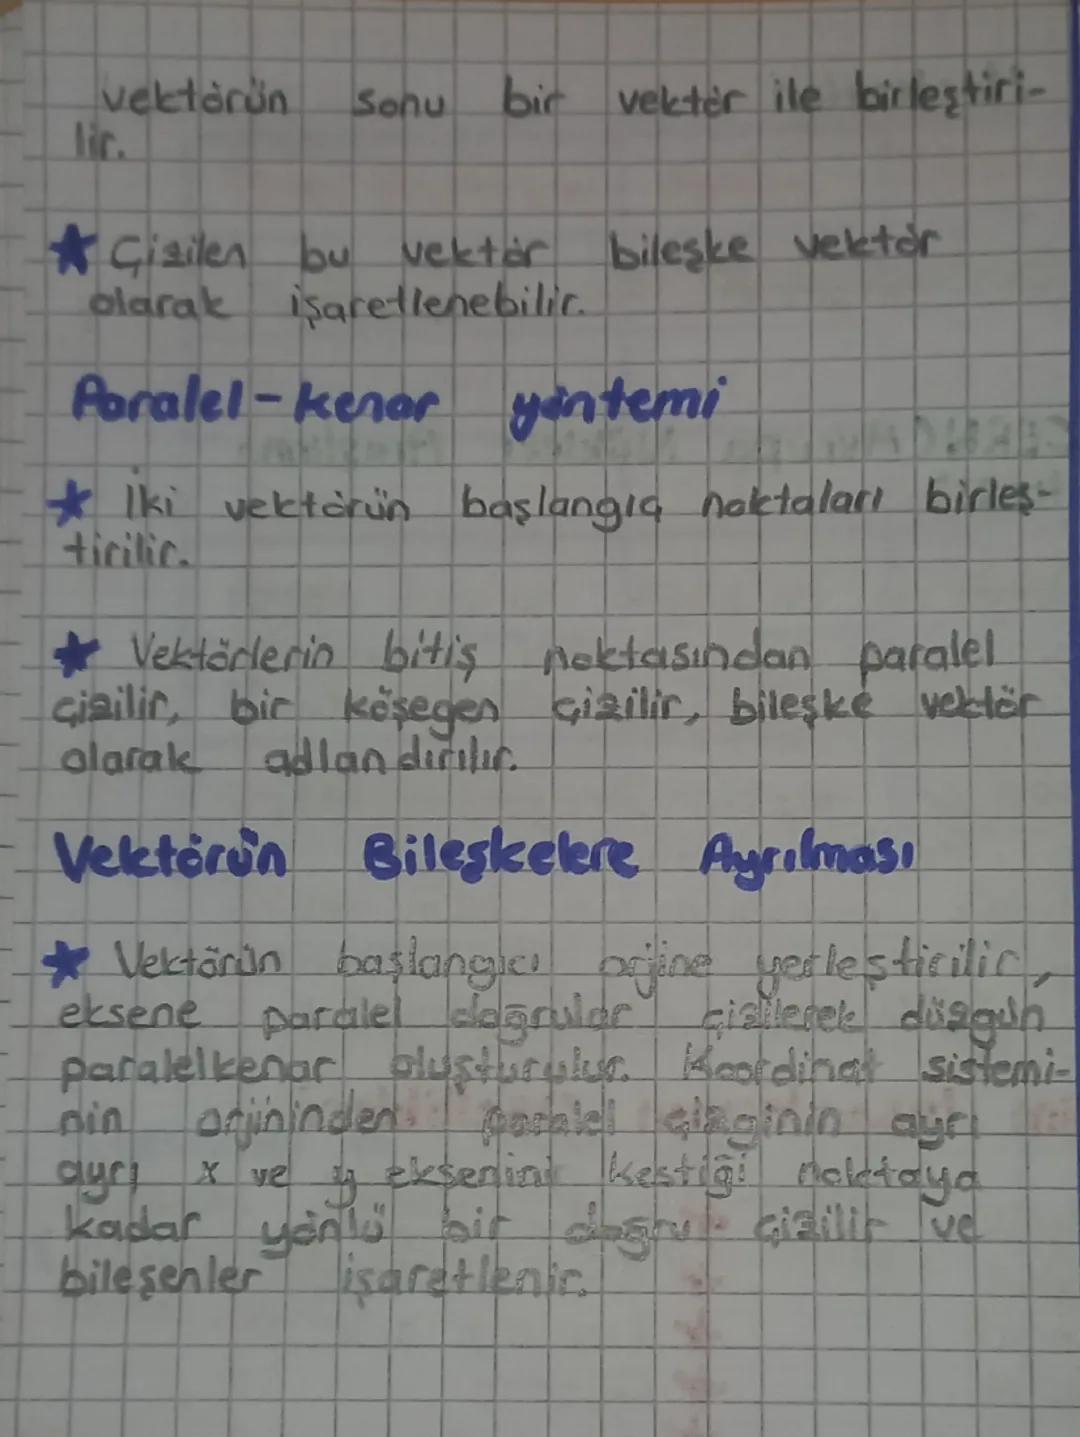 vektörün sonu bir vektör ile birleştiri-
lir.
★ Çizilen bu vektör bileşke vektör
olarak işaretlenebilir.
Paralel-kenar yöntemi
★ İki vektörün başlangıç noktaları birleş-
tirilir.
★ Vektörlerin bitiş noktasından paralel
çizilir, bir köşegen çizilir, bileşke vektör
olarak adlandırılır.
Vektörün Bileşkelere Ayrılması
★ Vektörün başlangıcı orjine yerleştirilir,
eksene paralel doğrular çizilerek düzgün
paralelkenar oluşturulur. Koordinat sistemi-
nin orjininden paralel çizginin ayrı
ayrı x ve y eksenini kestiği noktaya
kadar yönlü bir doğru çizilir ve
bileşenler işaretlenir.